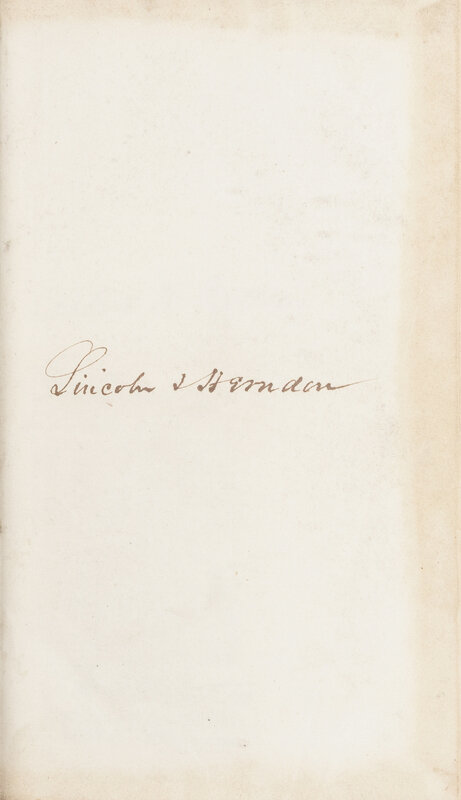 Lincoln & Herndon